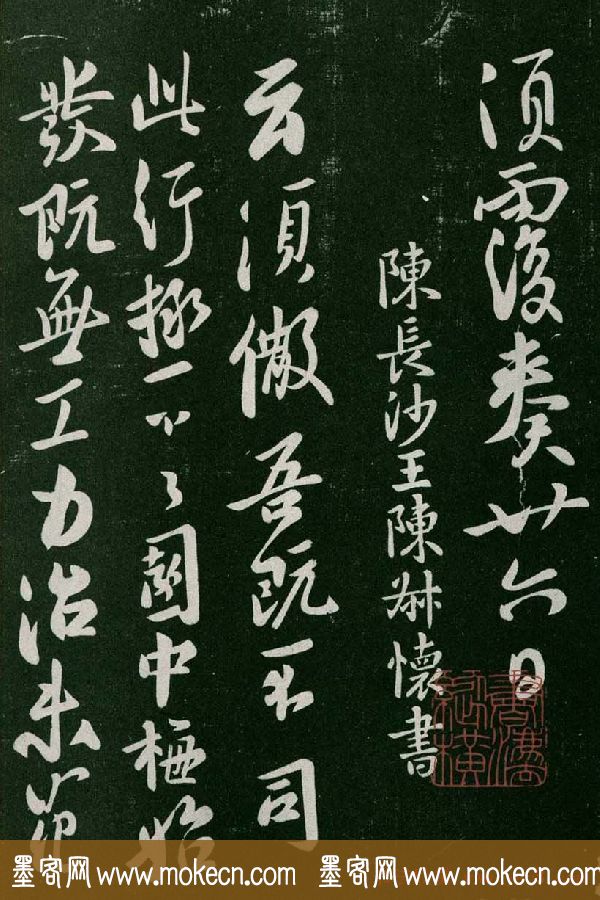 須覆奏廿六日
陳長沙王陳叔懷書
云須儆吾既不司
此行極不國中梅始
發既無工力治未
墨客网 www.mokecn.com 墨客网 www.mokecn.com